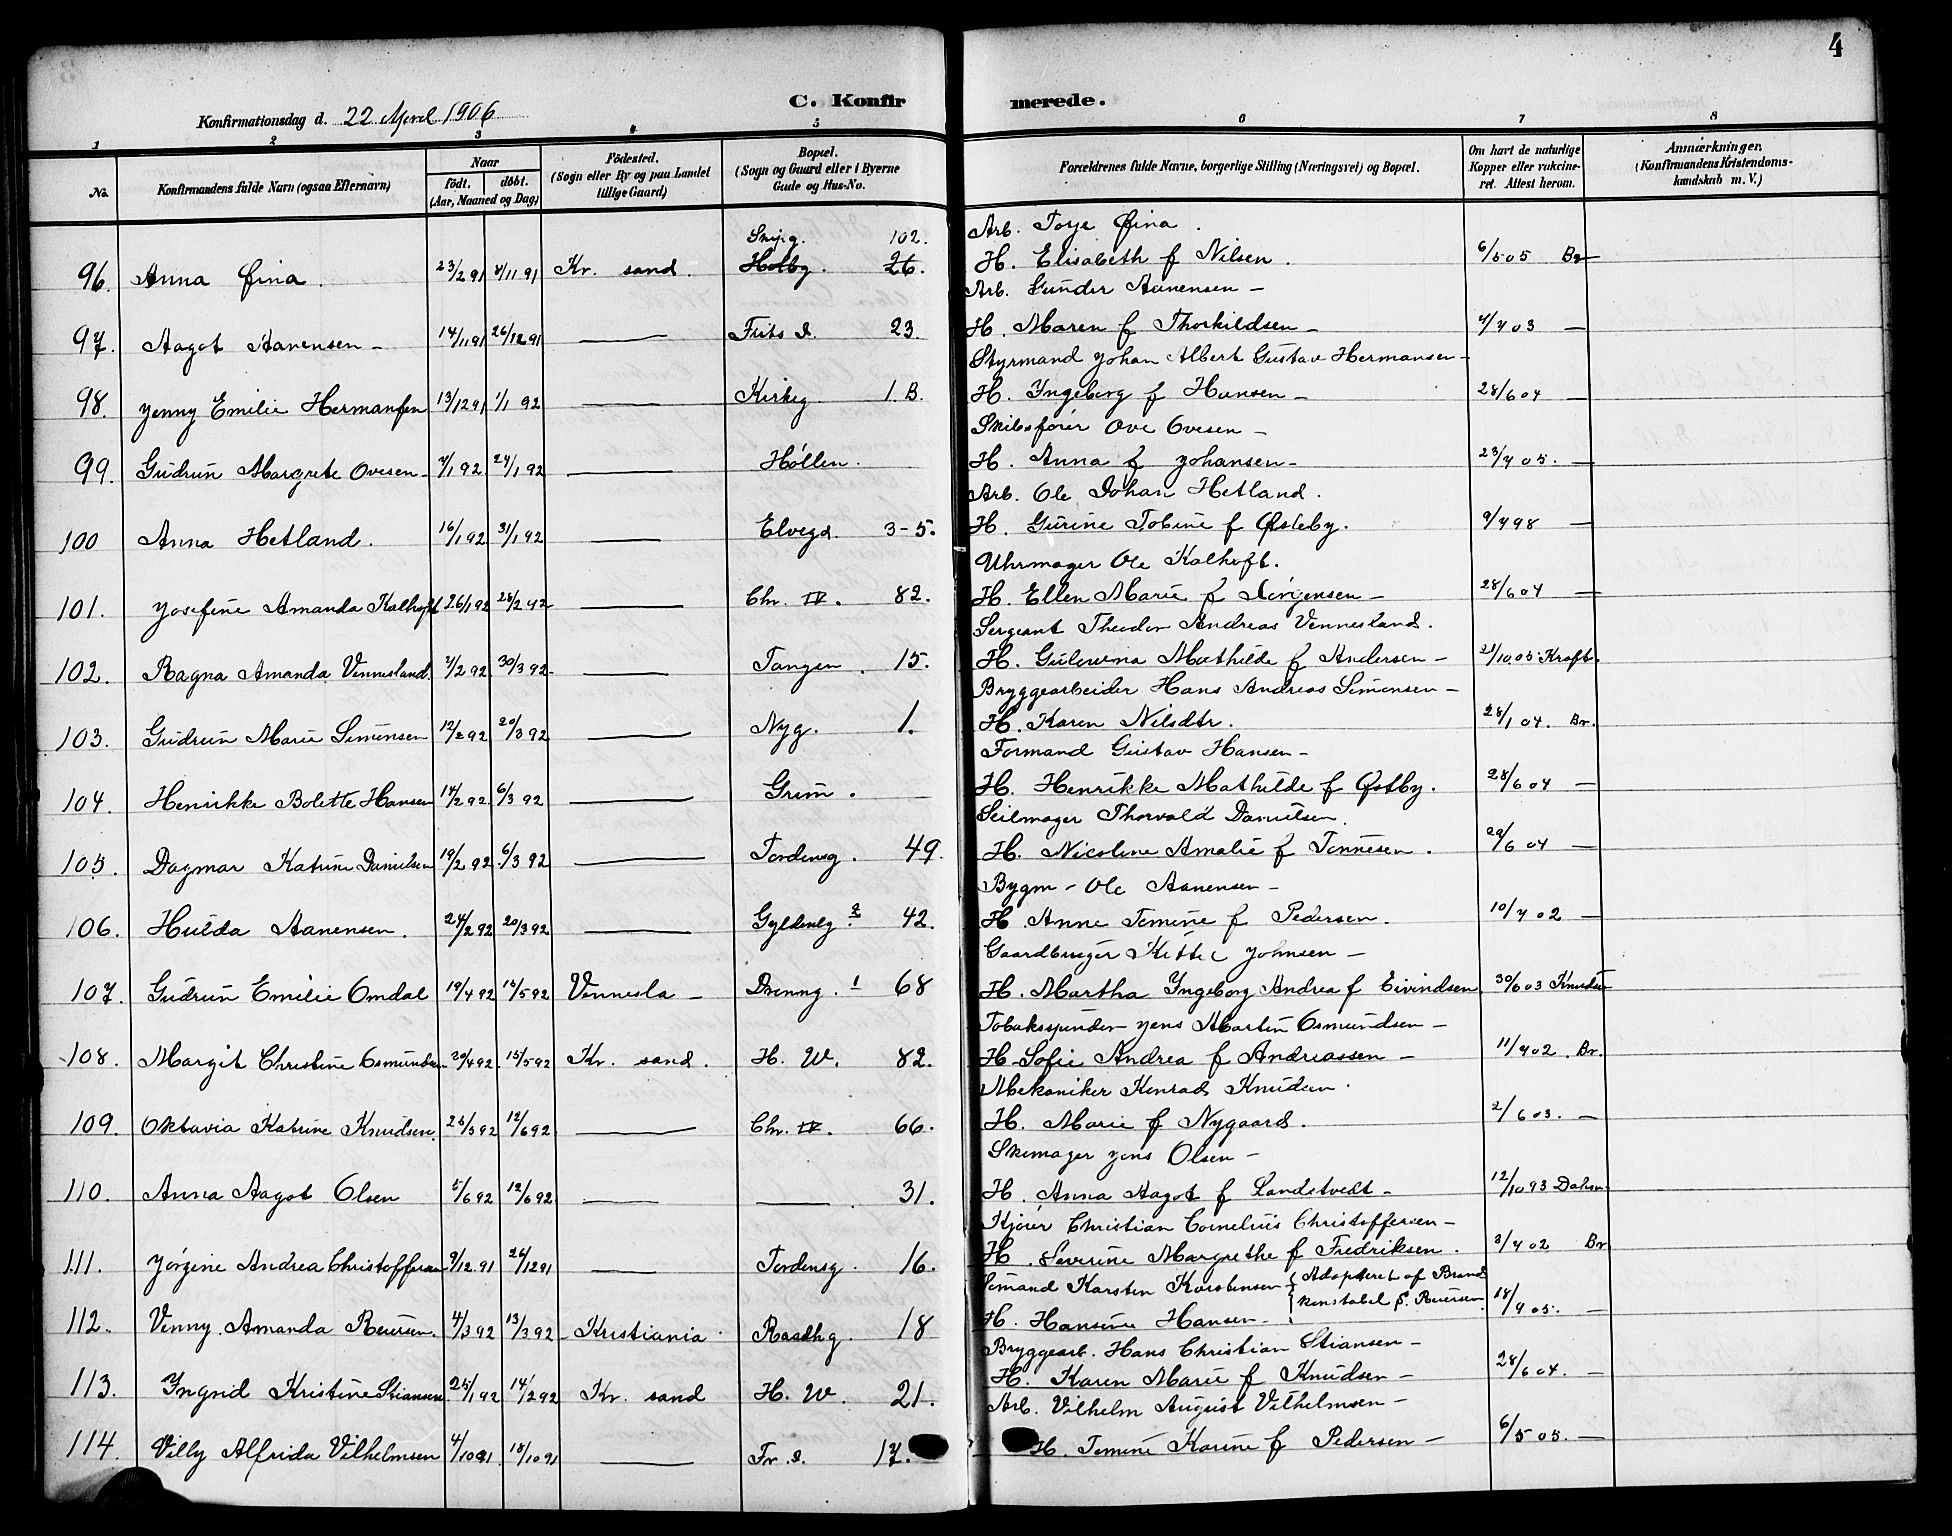 4
C. Konfirmerede.
Konfirmationsdag d. 22 April 1906
1 2 3 4 5 6 7 8
No.
Konfirmandens fulde Navn (ogsaa Efternavn)
Naar
født. døbt.
(Aar, Maaned og Dag)
Fødested.
(Sogn eller By og paa Landet
tillige Gaard)
Bopæl.
(Sogn og Gaard eller i Byerne
Gade og Hus-No.
Forældrenes fulde Navne, borgerlige Stilling (Næringsvei) og Bopæl.
Om havt de naturlige
Kopper eller vakcine-
ret. Attest herom.
Anmærkninger.
(Konfirmandens Kristendoms-
kundskab m. V.)
Skipg. 102. Arb. Torje Øina.
96. Anna Øina. 23/2 91 4/11 91 Kr. sand. Holbg. 26. H. Elisabeth f Nilsen. 6/5 05 Br
Arb. Gunder Aanensen —
97. Aagot Aanensen — 14/11 91 26/12 91 — Frits d. 23. H. Maren f Thorkildsen — 4/7 03 —
Styrmand Johan Albert Gustav Hermansen —
98. Jenny Emilie Hermansen 13/12 91 1/1 92 — Kirkeg. 1 B. H. Ingeborg f Hansen — 28/6 04 —
Skibsfører Ove Ovesen —
99. Gudrun Margrete Ovesen — 7/1 92 24/1 92 — Høllen. H. Anna f Johansen — 23/7 05. —
Arb. Ole Johan Hetland.
100 Anna Hetland. 16/1 92 31/1 92 — Elvegd. 3-5. H. Gurine Tobine f Østeby. 9/7 98 —
Uhrmager Ole Kalhoft.
101. Josefine Amanda Kalhoft 26/1 92 28/2 92 — Chr. IV. 82. H. Ellen Marie f Jørgensen — 28/6 04 —
Sergeant Theodor Andreas Vennesland.
102. Ragna Amanda Vennesland. 7/2 92 30/3 92 — Tangen. 15. H. Mathilde f Andersen — 21/10 05 Kraft.
Bryggearbeider Hans Andreas Simonsen —
103. Gudrun Marie Simonsen 12/2 92 20/3 92 — Nyg. 1. H. Karen Nilsdtr. 28/1 04. Br.
Formand Gustav Hansen —
104. Henrikke Bolette Hansen 14/2 92 6/3 92 — Grim. — H. Henrikke Mathilde f Østby. 28/6 04 —
Seilmager Thorvald Danielsen.
105. Dagmar Katrine Danielsen 19/2 92 6/3 92 — Tordensg. 49. H. Nicoline Amalie f Tønnesen. 29/6 04 —
Bygm — Ole Aanensen —
106. Hulda Aanensen. 24/2 92 20/3 92 — Gyldenlg. 42. H. Anne Temine f Pedersen. 10/7 02 —
Gaardbruger Kittel Johnsen —
107. Gudrun Emilie Omdal 19/4 92 15/5 92 Vennesla — Dronng. 1 68 H. Martha Ingeborg Andrea f Eivindsen 30/6 03 Knudsen
Tobaksspinder Jens Martin Osmundsen —
108. Margit Christine Osmundsen 20/4 92 15/5 92 Kr. sand. H. W. 82. H. Sofie Andrea f Andreassen — 11/7 02. Br.
Mekaniker Konrad Knudsen.
109. Oktavia Katrine Knudsen. 25/3 92 12/6 92 — Chr. IV. 66. H. Marie f Nygaard. 2/6 03. —
Skomager Jens Olsen —
110. Anna Aagot Olsen 5/6 92 12/6 92 — — 31. H. Anna Aagot f Landstvedt — 12/10 93 Dahm
Kjører Christian Cornelius Christoffersen —
111. Jørgine Andrea Christoffersen 9/12 91 26/12 91 — Tordensg. 16. H. Severine Margrethe f Fredriksen. 3/7 02 Br
Sømand Karsten Karstensen { Adopteret af Brand
konstabel S. Reiersen.
112. Venny Amanda Reiersen. 4/3 92 13/3 92 Kristiania. Raadhg. 18 H. Hansine Hansen — 18/9 05. —
Bryggearb. Hans Christian Stiansen —
113. Ingrid Kristine Stiansen. 25/1 92 14/2 92 Kr. sand H. W. 21. H. Karen Marie f Knudsen — 28/6 04. —
Arb. Vilhelm August Vilhelmsen —
114. Villy Alfrida Vilhelmsen 4/10 91 18/10 91 — Fr. d. 17. H. Temine Karine f Pedersen — 6/5 05. —